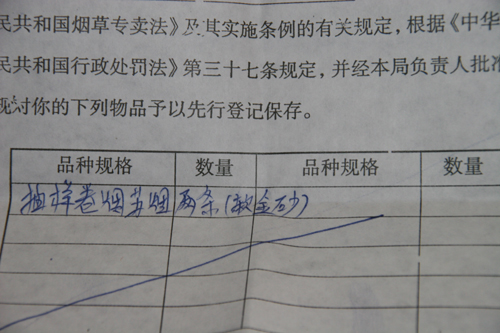 民共和国烟草专卖法》及其实施条例的有关规定，根据《中华
民共和国行政处罚法》第三十七条规定，并经本局负责人批准
现对你的下列物品予以先行登记保存。
品种规格 数量 品种规格 数量
抽样卷烟苏烟两条(软金砂)